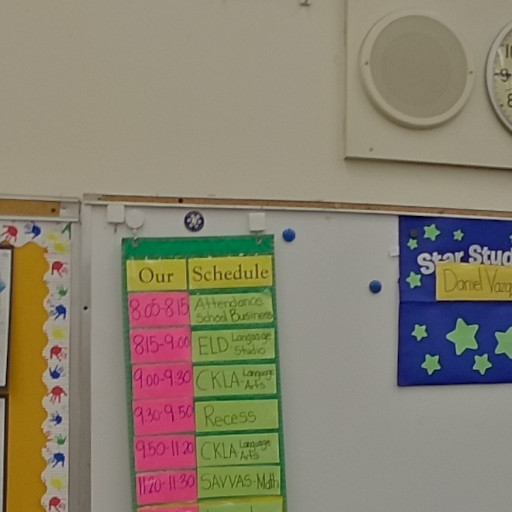 10
9
8
Our Schedule
8:05-8:15 Attendance
School Business
8:15-9:00 ELD Language
Studio
9:00-9:30 CKLA-Language
Arts
9:30-9:50 Recess
9:50-11:20 CKLA-Language
Arts
11:20-11:30 SAVVAS-Math
Star Stud
Daniel Vazq